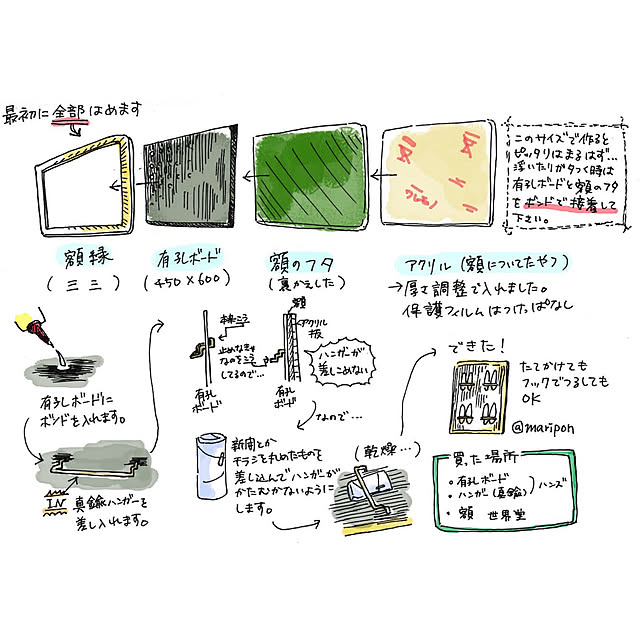 最初に全部はめます
額縁
(三三)
有孔ボード
(450×600)
額のフタ
(裏かえした)
アクリル(額についてたやつ)
→厚て調整で入れました。
保護フィルムはつけっぱなし
このサイズで作ると
ピッタリはまるはず…
浮いたりガタつく時は
有孔ボードと額のフタ
をボンドで接着して
下さい。
有孔ボードに
ボンドを入れます。
IN
真鍮ハンガーを
差し入れます。
本来こう
止めなきゃ
なのをこう
してるので…
有孔
ボード
額
アクリル
板
有孔
ボード
ハンガーが
差しこめない
なので…
新聞とか
チラシを丸めたものを
差し込んでハンガーが
かたむかないように
します。
(乾燥…)
できた!
たてかけても
フックでつるしても
OK
@maripon
買った場所
・有孔ボード
・ハンガー(真鍮)
ハンズ
・額 世界堂